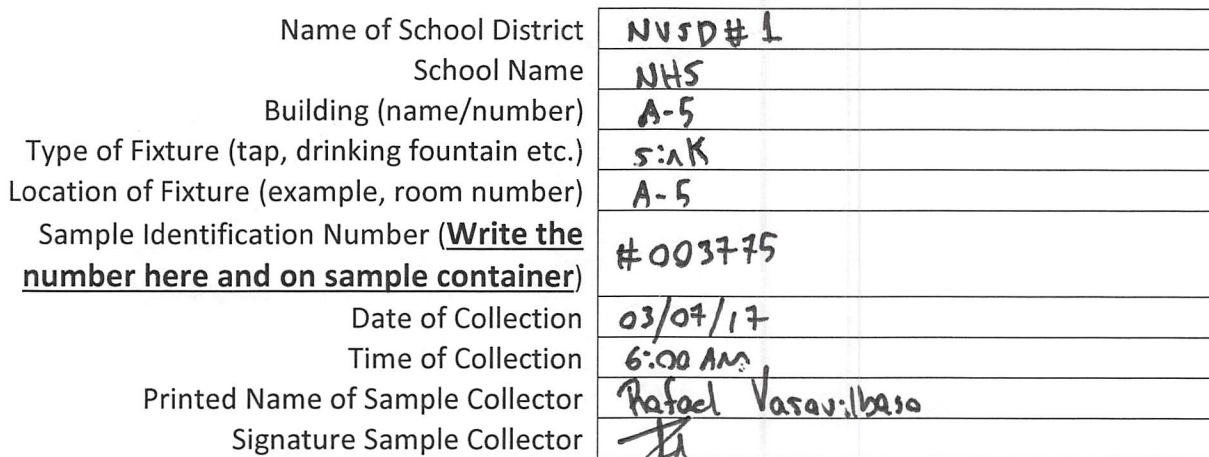 Name of School District NUSD# 1
School Name NHS
Building (name/number) A-5
Type of Fixture (tap, drinking fountain etc.) sink
Location of Fixture (example, room number) A-5
Sample Identification Number (Write the
number here and on sample container) #003775
Date of Collection 03/07/17
Time of Collection 6:00 AM
Printed Name of Sample Collector Rafael Vasavilbaso
Signature Sample Collector